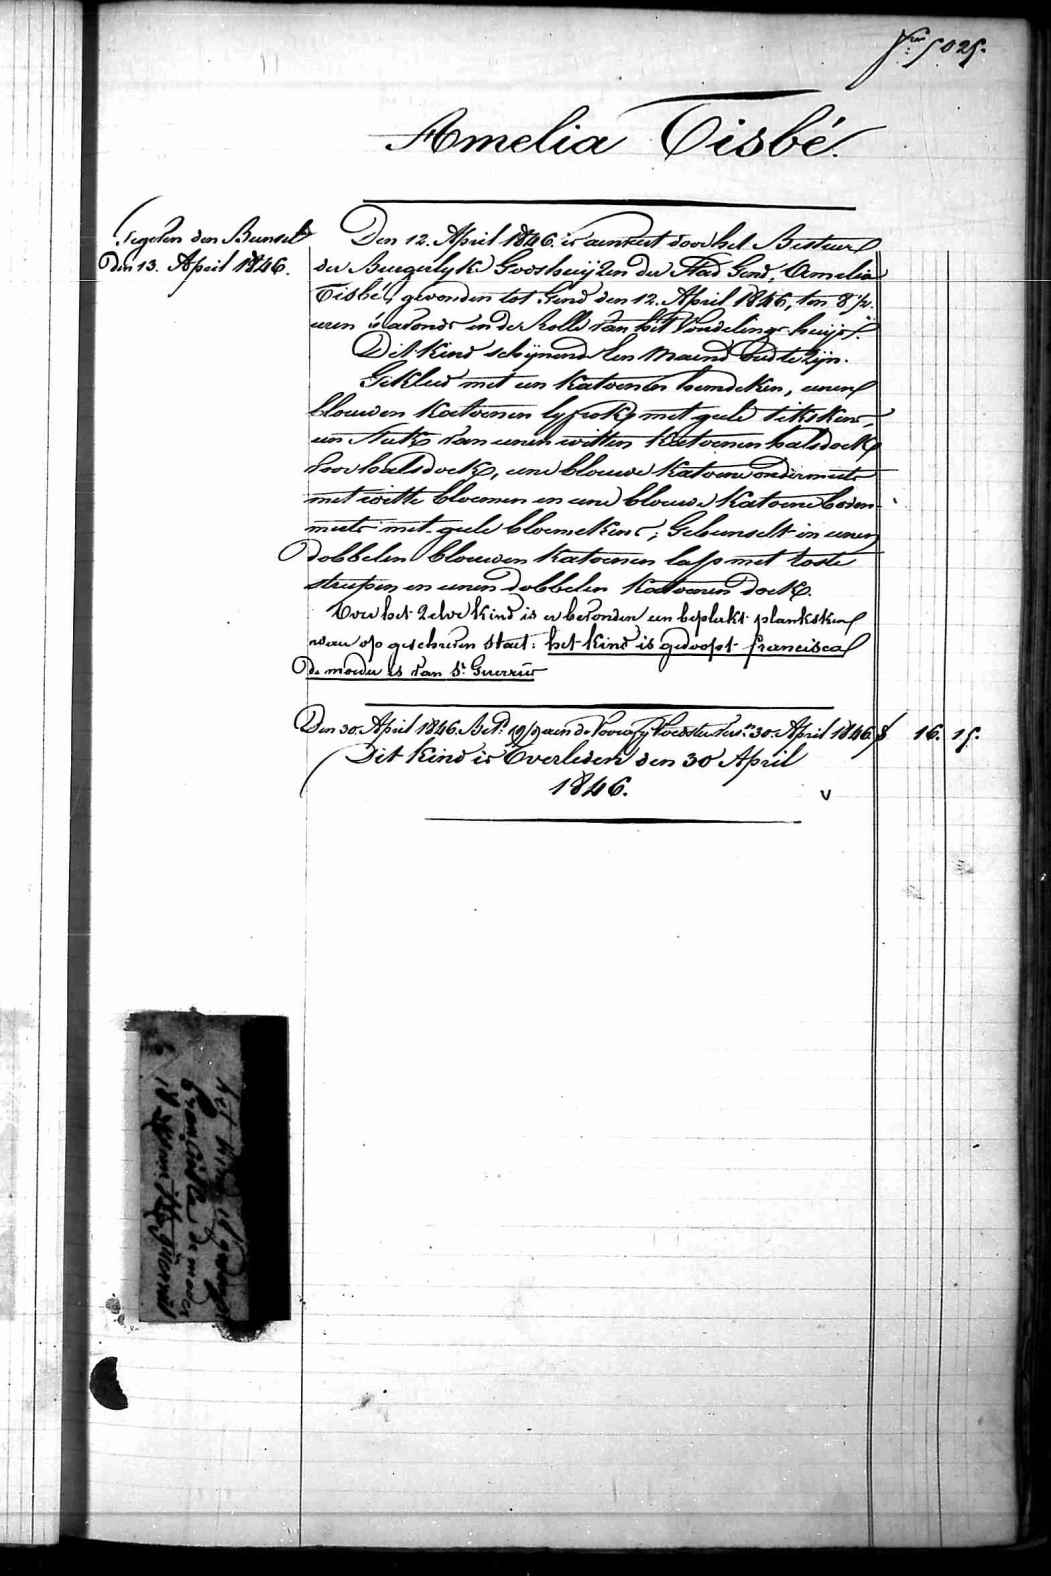 5025.
Amelia Tisbé.
Gegeven den Bunsel
Den 13. April 1846.
Den 12. April 1846. is aenveert door het Bestuer
der Burgerlyke Godshuijzen der Stad Gend Amelia
Tisbé, gevonden tot Gend den 12. April 1846, ten 8 ½
uren 's avonds in de Rolle van het Vondelings-huijs.
Dit Kind schijnende Een Maend oud te zijn.
Gekleed met een katoenen hemdeken, eenen
blouwen katoenen lyfrok met geele tikskens,
een stuk van eenen witten katoenen halsdoek
voor halsdoek, eene blouwe katoene ondermuts
met witte bloemen en eene blouwe katoene boven-
muts met geele bloemekens; Gebunselt in eenen
dobbelen blouwen katoenen lap met roste
streepen en eenen dobbelen katoenen doek.
Voor het zelve kind is er bevonden een beplekt plankskens
waer op geschreven staet: het kind is gedoopt francisca
de moeder is van St. Guerrier
Den 30. April 1846. Bet: aen de Voedster 30. April 1846. 16. 15.
Dit Kind is Overleden den 30 April
1846.
het kind is gedoopt
francisca de moeder
is van St. guerrier